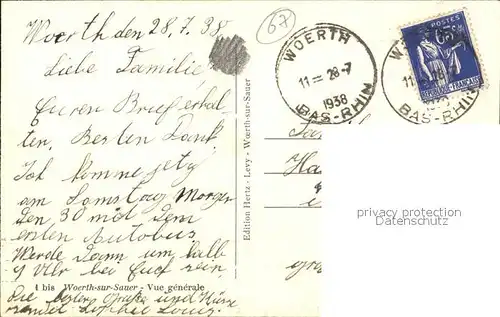 Woerth den 28.7.38.
Liebe Familie
Euren Brief erhal-
ten, Besten Dank.
Ich komme jetz
am Samstag Morgen
den 30 mit dem
ersten Autobus
Werde dann um halb
9 Uhr bei Euch sein,
die besten Grüße und Küsse
sendet Louis.
1 bis Woerth-sur-Sauer - Vue générale
Edition Hertz - Levy - Woerth-sur-Sauer
67
WOERTH
11 = 28-7
1938
BAS-RHIN
POSTES
65c
BAS-RHIN
privacy protection
Datenschutz